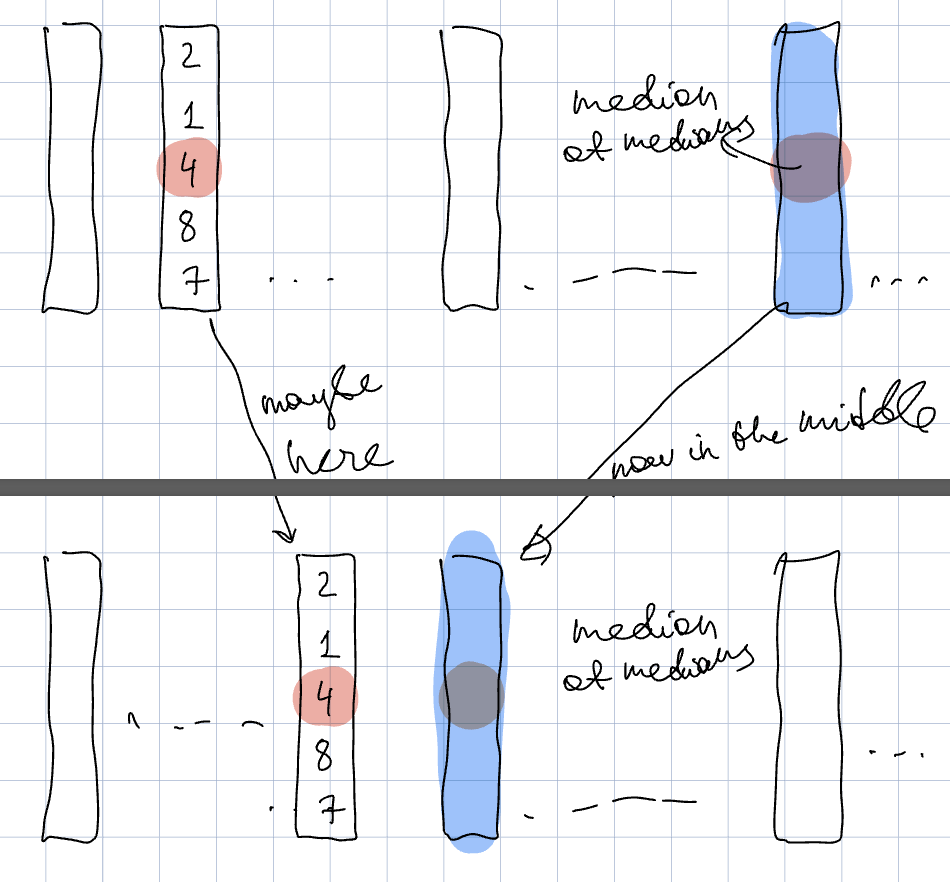 2
1
4
8
7
. . .
median
of medians
. . .
maybe
here
now in the middle
2
1
4
8
7
median
of medians
. . .